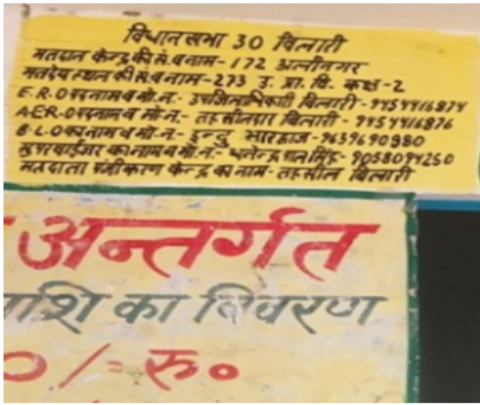 विधानसभा 30 बिलारी
मतदान केन्द्र की सं. व नाम - 172 अलीनगर
मतदेय स्थान की सं. व नाम - 273 उ. प्रा. वि. कक्ष - 2
E.R.O पदनाम व मो. न. - उपजिलाधिकारी बिलारी - 9454416874
A.E.R.O पदनाम व मो. न. - तहसीलदार बिलारी - 9454416876
B.L.O का नाम व मो. न. - इन्दु भारद्वाज - 9639690980
सुपरवाईजर का नाम व मो. न. - धनेन्द्र पाल सिंह - 9058094250
मतदाता पंजीकरण केन्द्र का नाम - तहसील बिलारी
अन्तर्गत
राशि का विवरण
0/= रु०